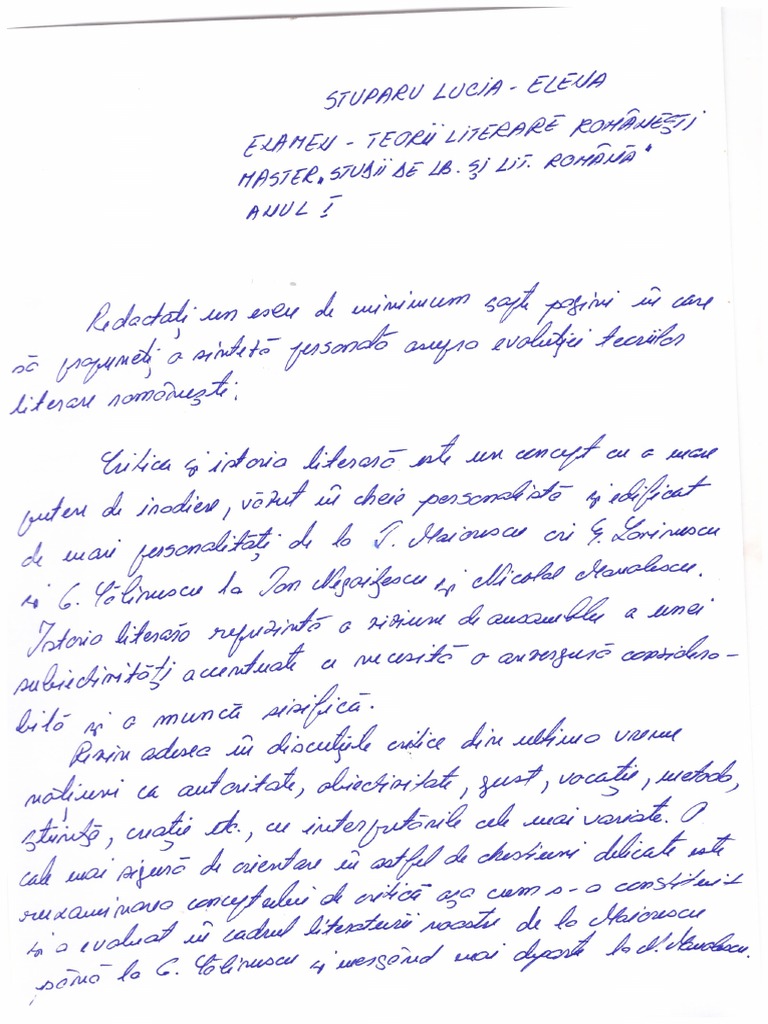 STUPARU LUCIA - ELENA
EXAMEN - TEORII LITERARE ROMÂNEȘTI
MASTER „STUDII DE LB. ȘI LIT. ROMÂNĂ"
ANUL I
Redactați un eseu de minimum șapte pagini în care
să propuneți o sinteză personală asupra evoluției teoriilor
literare românești.
Critica și istoria literară este un concept cu o mare
putere de iradiere, văzut în cheie personalistă și edificat
de mari personalități de la T. Maiorescu ori E. Lovinescu
și G. Călinescu la Ion Negoițescu și Nicolae Manolescu.
Istoria literară reprezintă o viziune de ansamblu a unei
subiectivități accentuate ce necesită o anvergură considera-
bilă și o muncă sisifică.
Revin adesea în discuțiile critice din ultima vreme
noțiuni ca autoritate, obiectivitate, gust, vocație, metodă,
știință, creație etc., cu interpretările cele mai variate. O
cale mai sigură de orientare în astfel de chestiuni delicate este
reexaminarea conceptului de critică așa cum s-a constituit
și a evoluat în cadrul literaturii noastre de la Maiorescu
până la G. Călinescu și mergând mai departe la N. Manolescu.